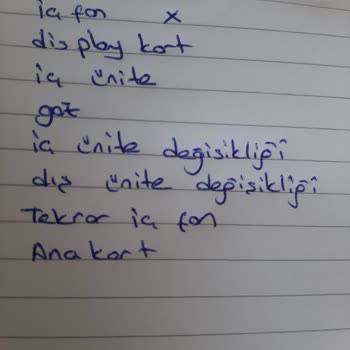 iç fon x
display kart
iç ünite
gaz
iç ünite değişikliği
dış ünite değişikliği
Tekrar iç fon
Anakart